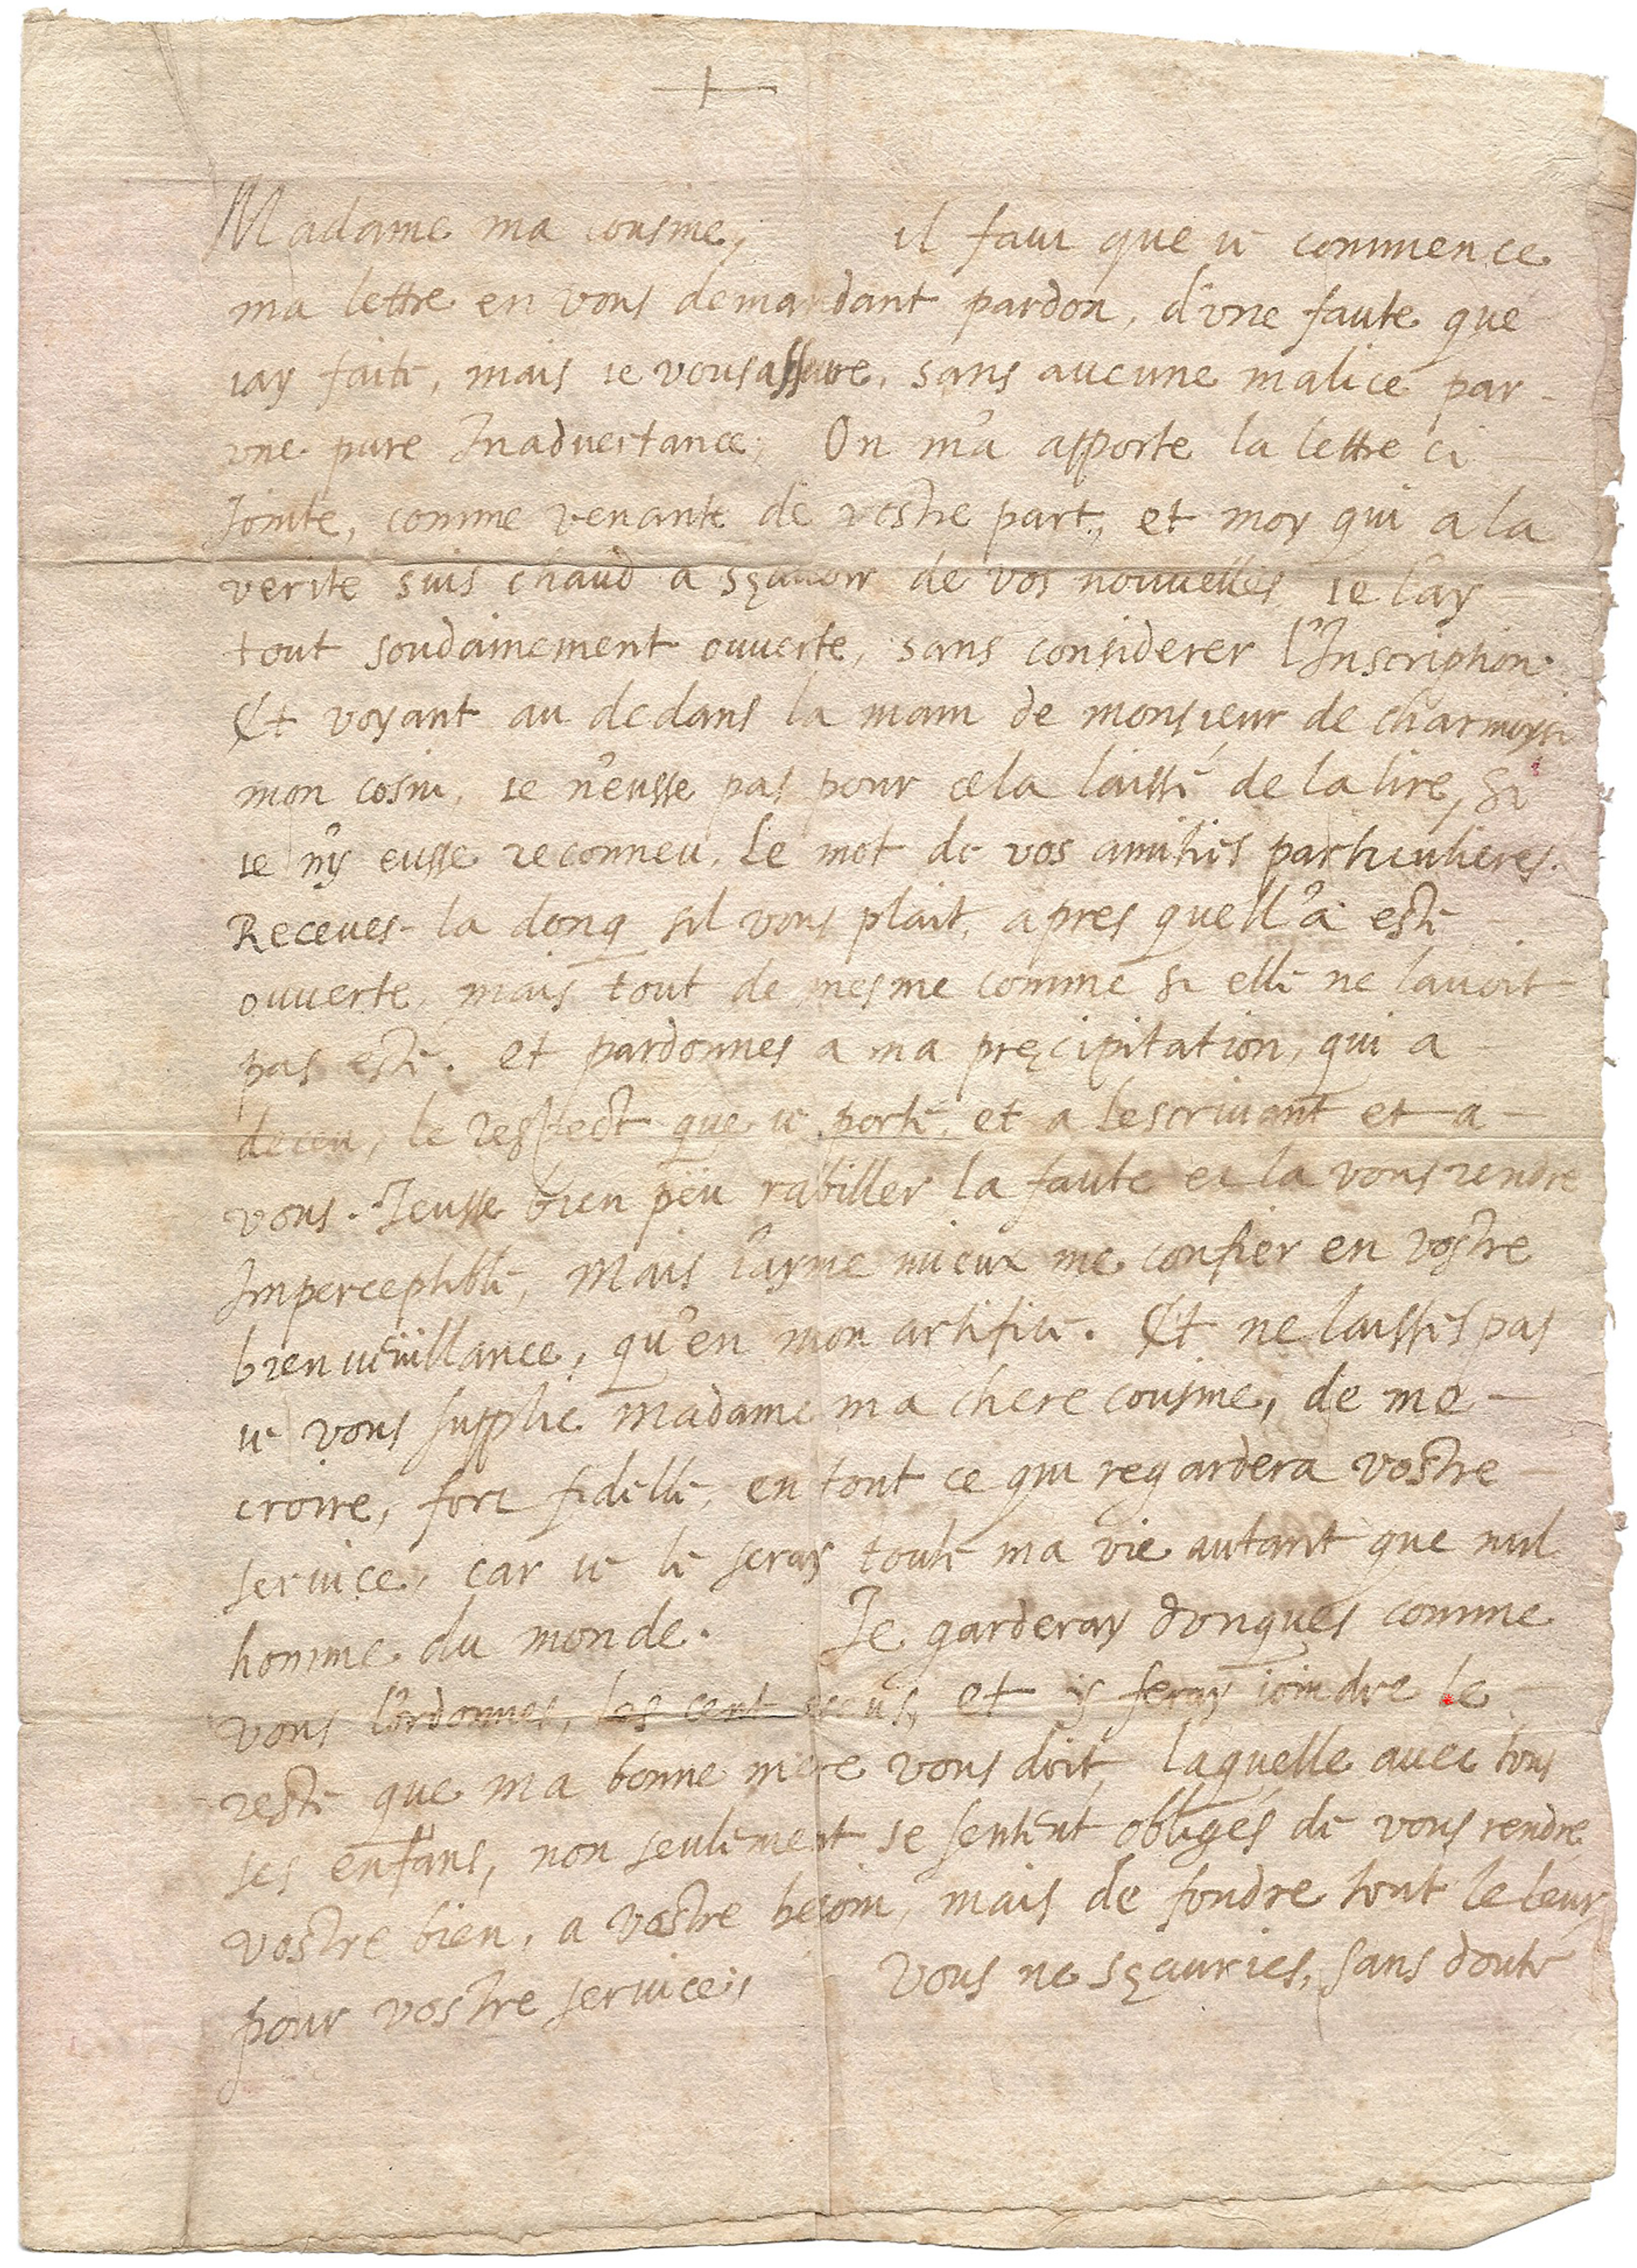 Madame ma cousine, il faut que ie commence
ma lettre en vous demandant pardon, d'vne faute que
iay faite, mais ie vous asseure, sans aucune malice par
vne pure Inaduertance, On m'a apporte la lettre ci
Jointe, comme venante de vostre part, et moy qui a la
verite suis chaud a sçauoir de vos nouuelles ie l'ay
tout soudainement ouuerte, sans considerer l'Inscription
Et voyant au dedans la main de monsieur de charmoysi
mon cosin, ie n'eusse pas pour cela laissé de la lire, si
ie n'y eusse reconneu le mot de vos amitiés particulieres.
Receues la donq sil vous plait, apres quell'a esté
ouuerte, mais tout de mesme comme si elle ne lauoit
pas esté. et pardonnes a ma precipitation, qui a
deceu, le respect que ie porte, et a lescriuant et a
vous. Jeusse bien peu rabiller la faute et la vous rendre
Imperceptible, Mais i'ayme mieux me confier en vostre
bienueüillance, qu'en mon artifice. Et ne laissés pas
ie vous supplie madame ma chere cousine, de me
croire, fort fidelle, en tout ce qui regardera vostre
seruice, car ie le seray toute ma vie autant que nul
homme du monde. Je garderay donques comme
vous l'ordonnes, les cent escus, et y feray ioindre le
reste que ma bonne mere vous doit, laquelle auec tous
ses enfans, non seulement se sentent obligés de vous rendre
vostre bien, a vostre besoin, mais de fondre tout le leur
pour vostre seruice, Vous ne sçauries, sans doute